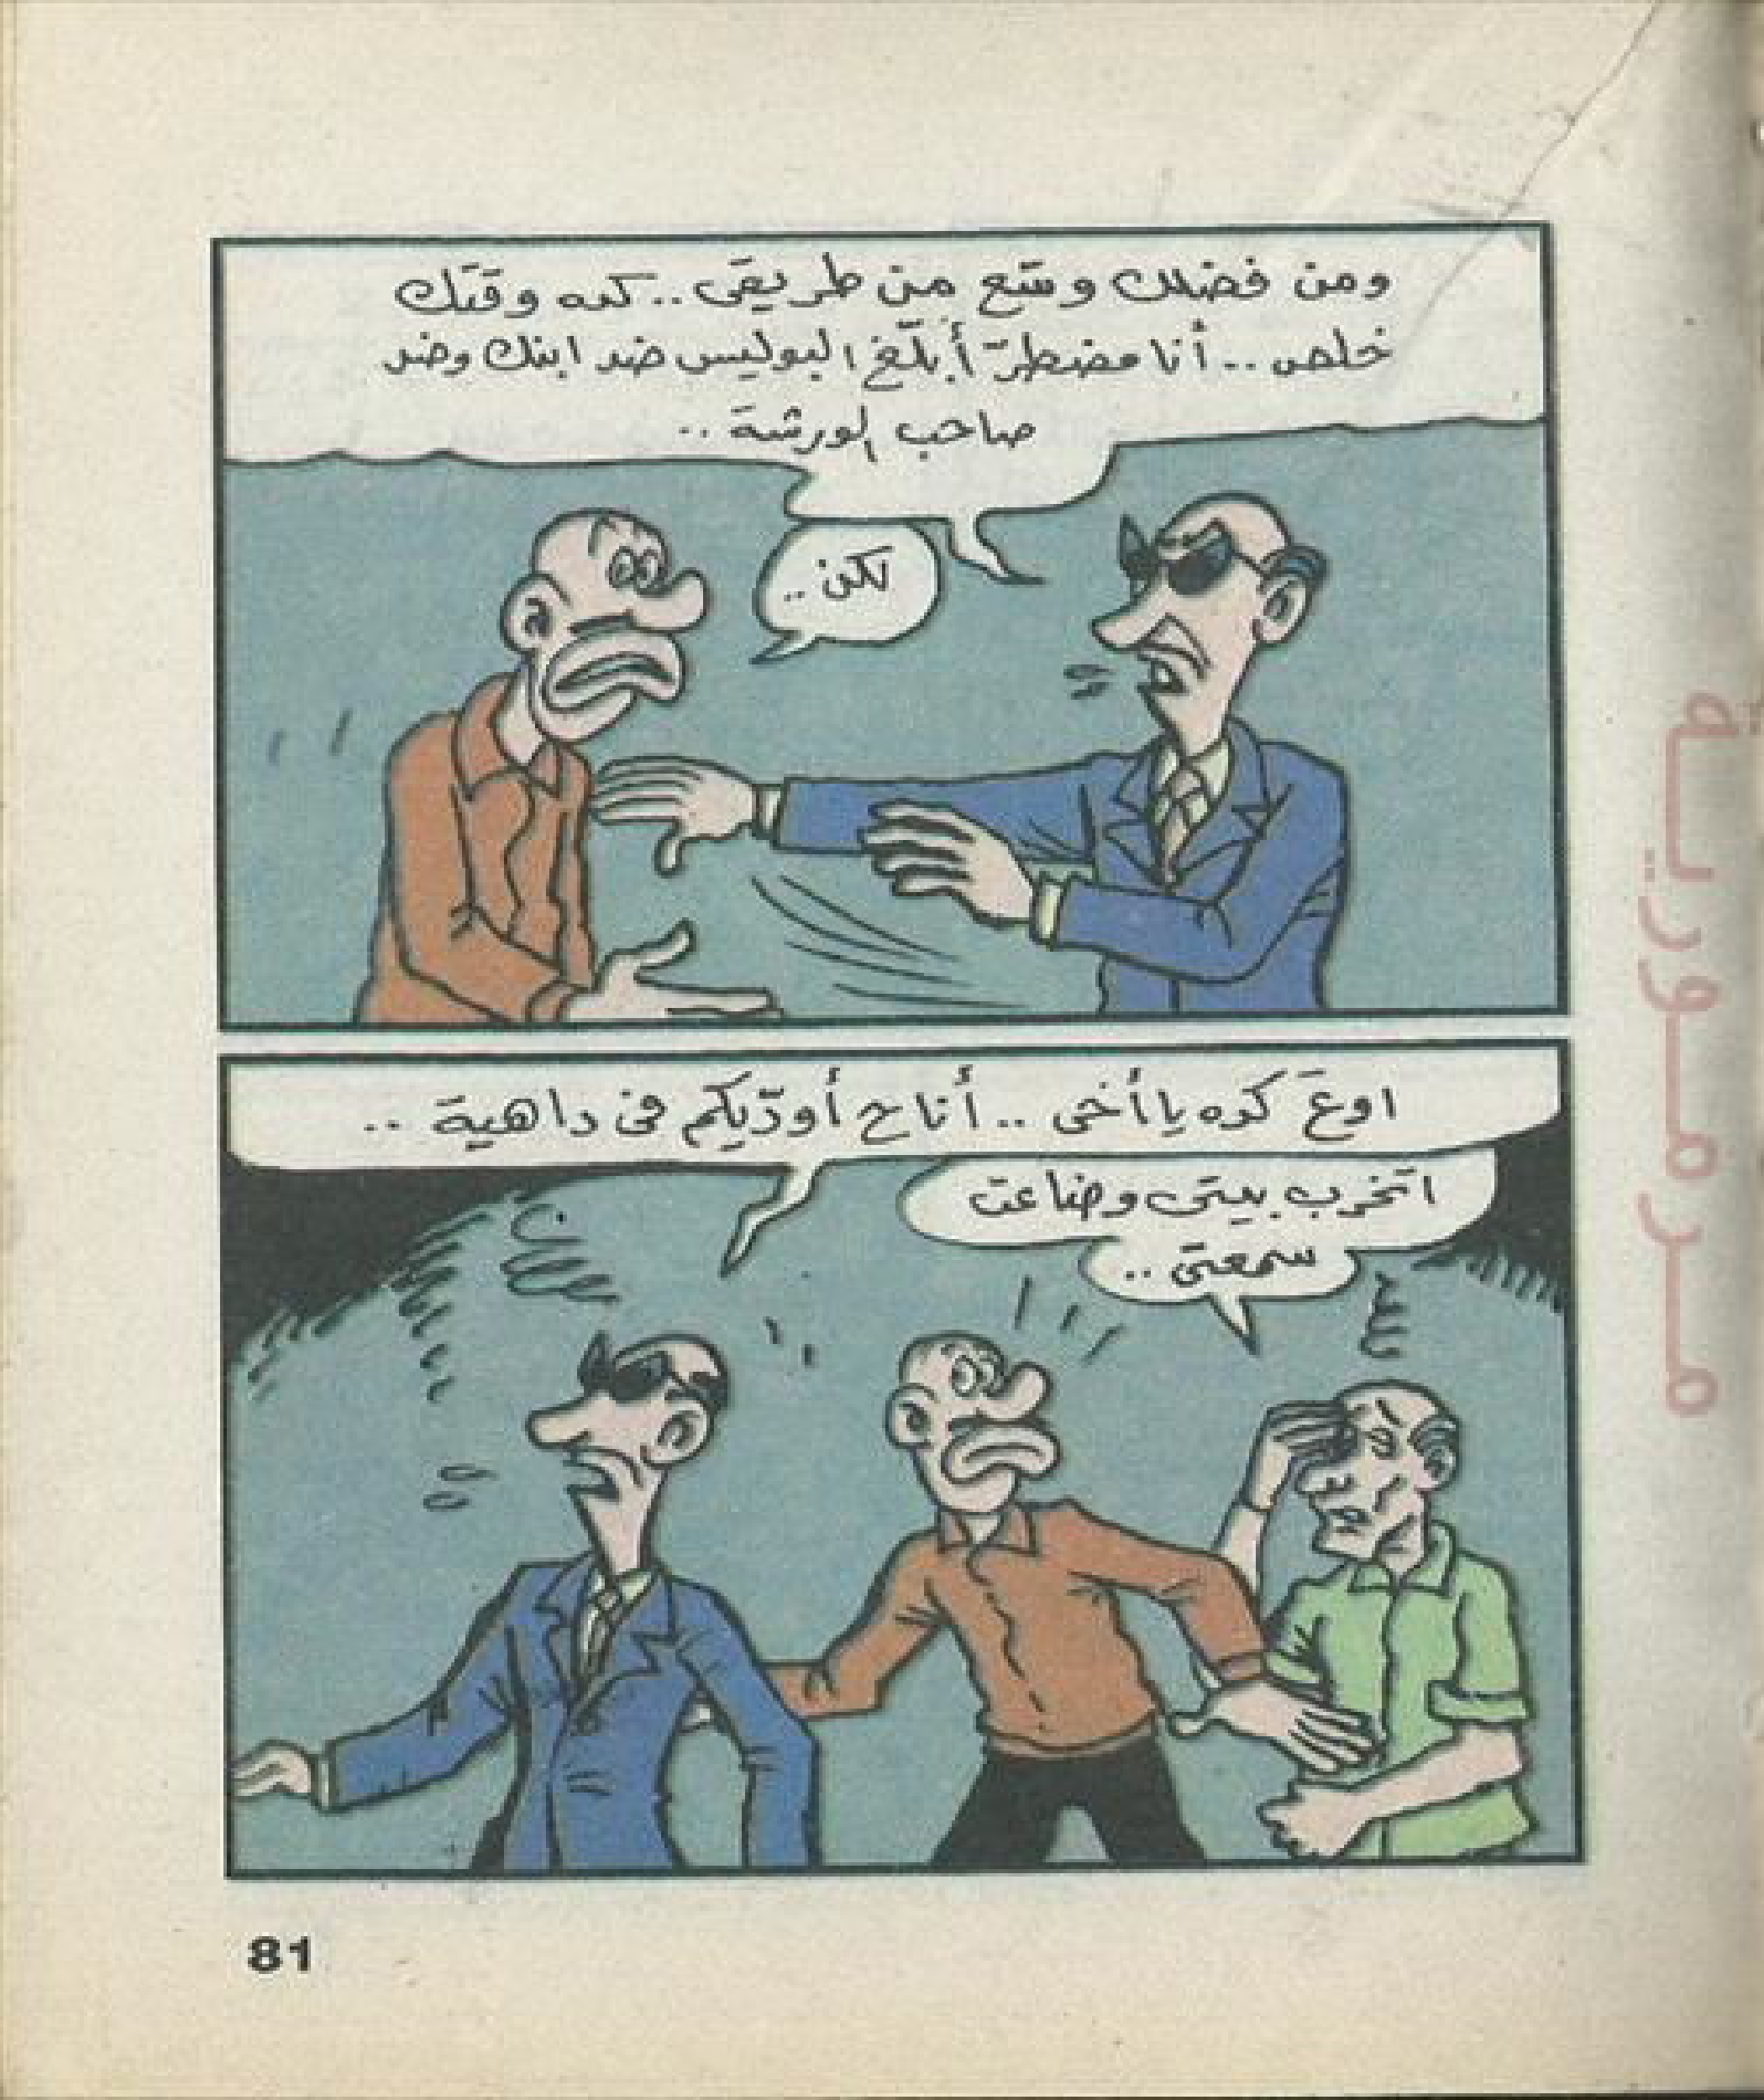 ومن فضلك وسّع من طريقى.. كده وقتك
خلص.. أنا مضطرّ أبلّغ البوليس ضد ابنك وضد
صاحب الورشة..
لكن..
اوعَ كده يا أخى.. أنا ح أودّيكم فى داهية..
اتخرب بيتى وضاعت
سمعتى..
مرمورية
81